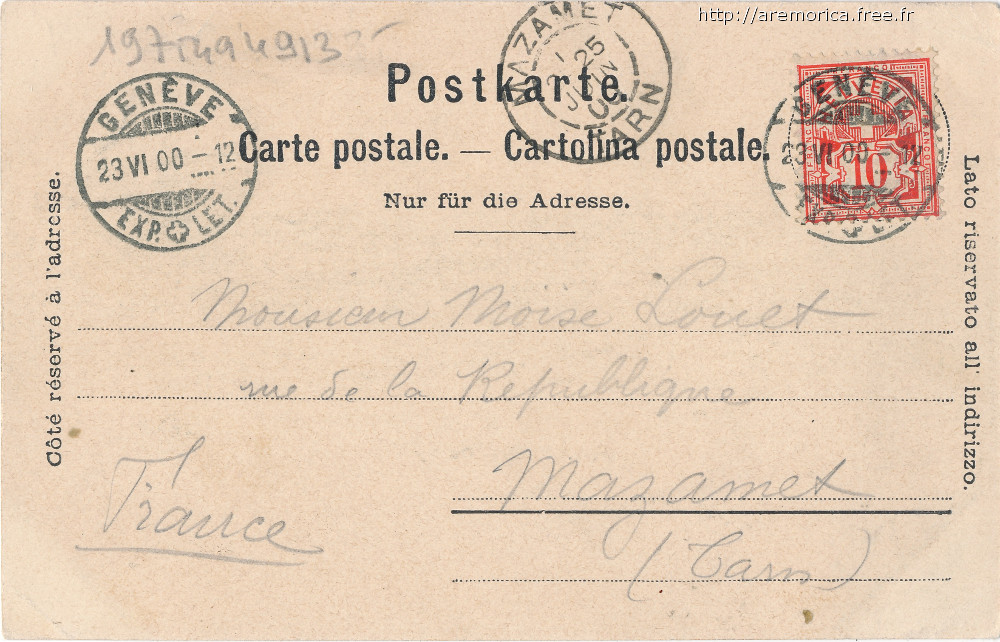 http://aremorica.free.fr
MAZAMET
25
JUIN
TARN
Postkarte.
GENÈVE
23 VI 00 - 12
EXP. LET.
GENÈVE
23 VI 00 - 12
EXP. LET.
FRANCO
HELVETIA
10
Carte postale. — Cartolina postale.
Nur für die Adresse.
Côté réservé à l'adresse.
Lato riservato all' indirizzo.
Monsieur Moïse Louet
rue de la Republique
Mazamet
France
(Tarn)